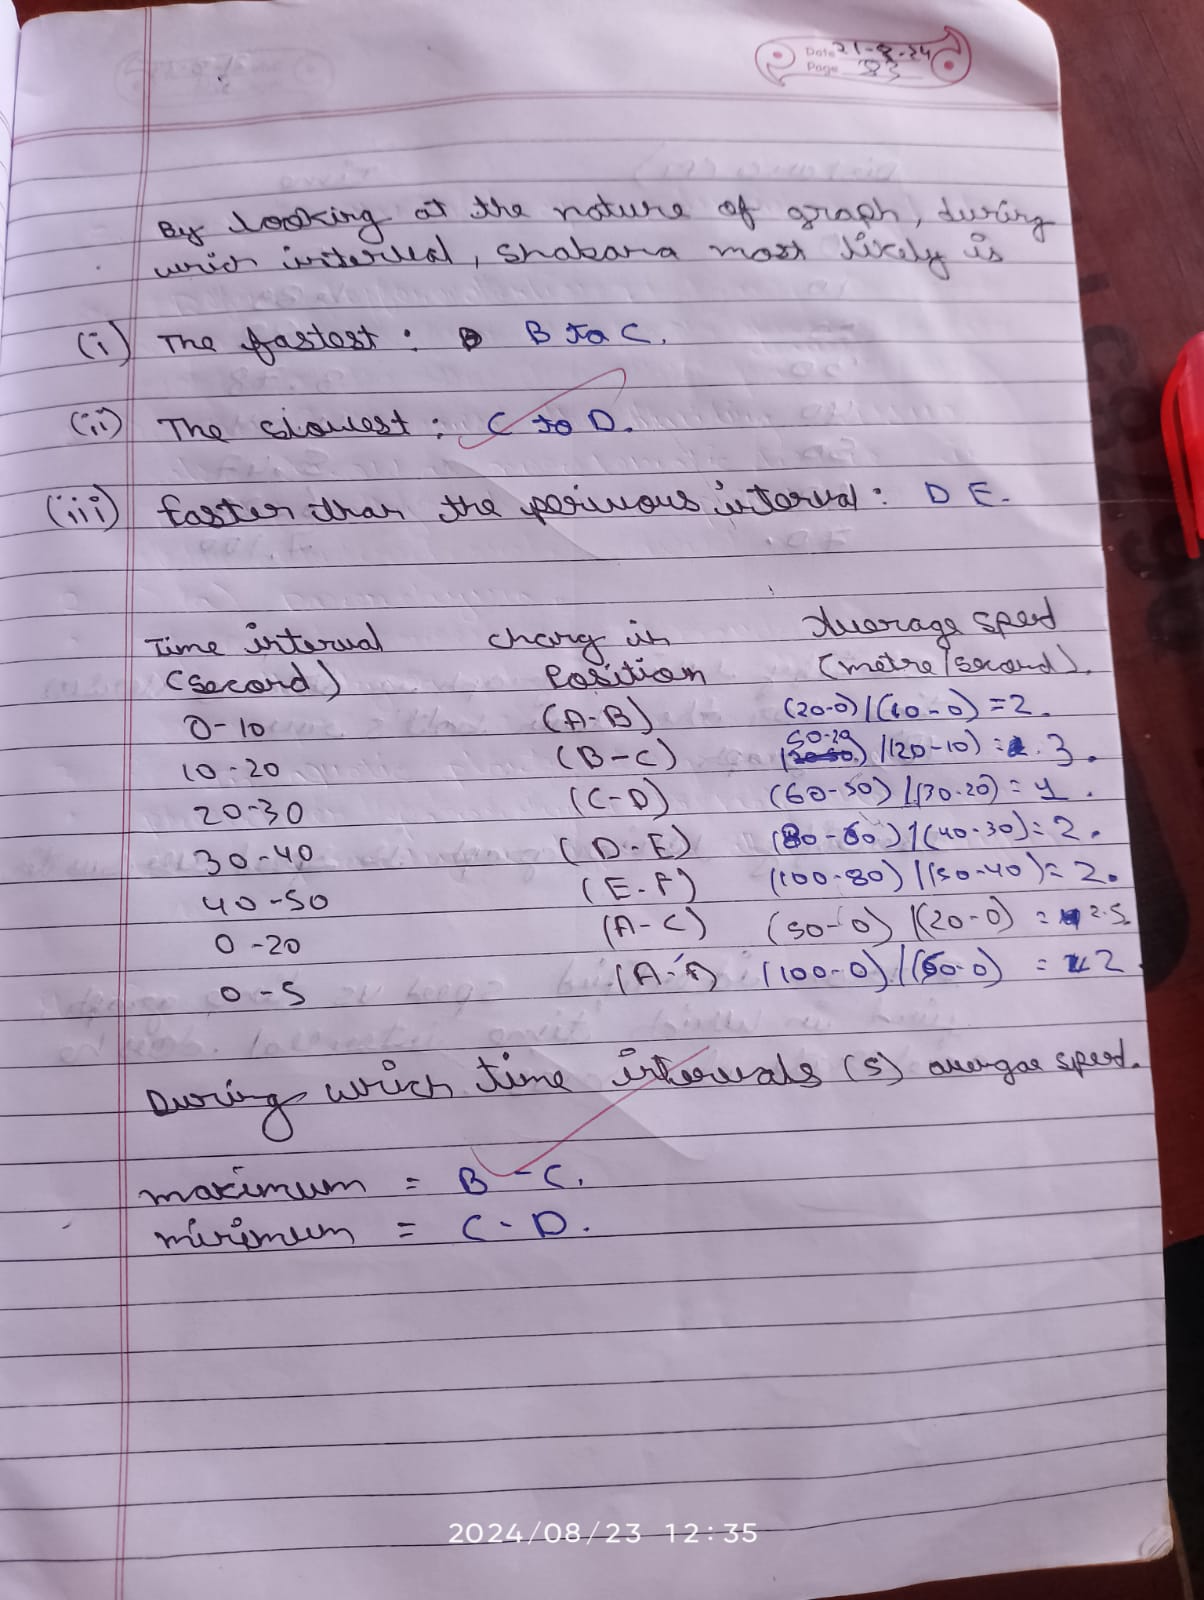 Date 21-8-24
Page 83
By looking at the nature of graph, during
which interval, Shabara most likely is
(i) The fastest : B to C.
(ii) The slowest : C to D.
(iii) faster than the perivous interval : D E.
Time interval chang in Average sped
(second) Position (metre/second).
0-10 (A-B) (20-0)/(10-0) = 2.
10-20 (B-C) 50-20)/(20-10) = 3.
20-30 (C-D) (60-50)/(30-20) = 1.
30-40 (D-E) (80-60)/(40-30) = 2.
40-50 (E-F) (100-80)/(50-40) = 2.
0-20 (A-C) (50-0)/(20-0) = 2.5.
0-5 (A-F) (100-0)/(50-0) = 2.
During which time intervals (s) avergae sped.
maximum = B-C.
minimum = C-D.
2024/08/23 12:35